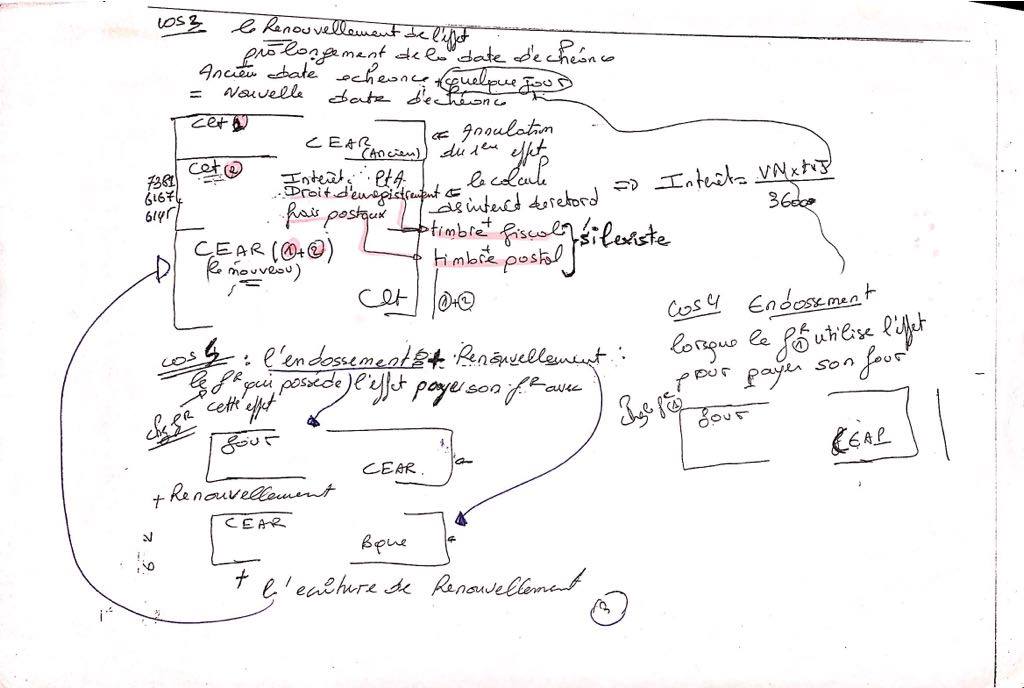 cos 3 le Renouvellement de l'effet
prolongement de la date d'échéance
Ancien date echéance + quelque Jour
= Nouvelle date d'échéance
Clt 1
CEAR (Ancien)
<= Annulation
du 1er effet
Clt ②
7381
6167
6145
Intérêt. RtA
Droit d'enregistrement <= le calcule
frais postaux
des interêt de retard
=> Intérêt = VN x t x J
36000
timbre fiscal
+
timbre postal
s'il existe
CEAR (①+②)
(le nouveau)
Clt
①+②
cos 4 Endossement
lorsque le fR ① utilise l'effet
pour payer son four
chez fR ①
four
CEAR
cos 5 : l'endossement + Renouvellement :
le fR qui possede l'effet payer son fR avec
cette effet
chez fR
four
CEAR
+ Renouvellement
CEAR
Bque
+ l'ecriture de Renouvellement
③